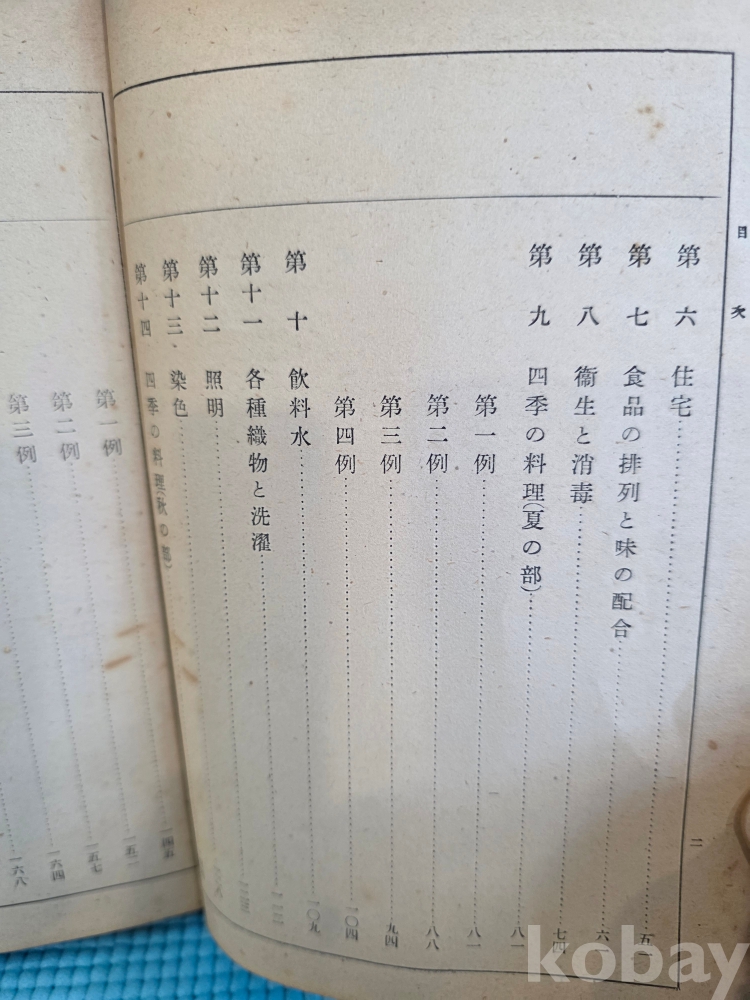 目次
第六 住宅
第七 食品の排列と味の配合
第八 衞生と消毒 七四
第九 四季の料理(夏の部) 八一
第一例 八一
第二例 八八
第三例 九四
第四例 一〇四
第十 飲料水 一〇九
第十一 各種織物と洗濯
第十二 照明
第十三 染色
第十四 四季の料理(秋の部) 一四五
二
第一例 一五一
第二例 一五七
第三例 一六四
一六八
kobay